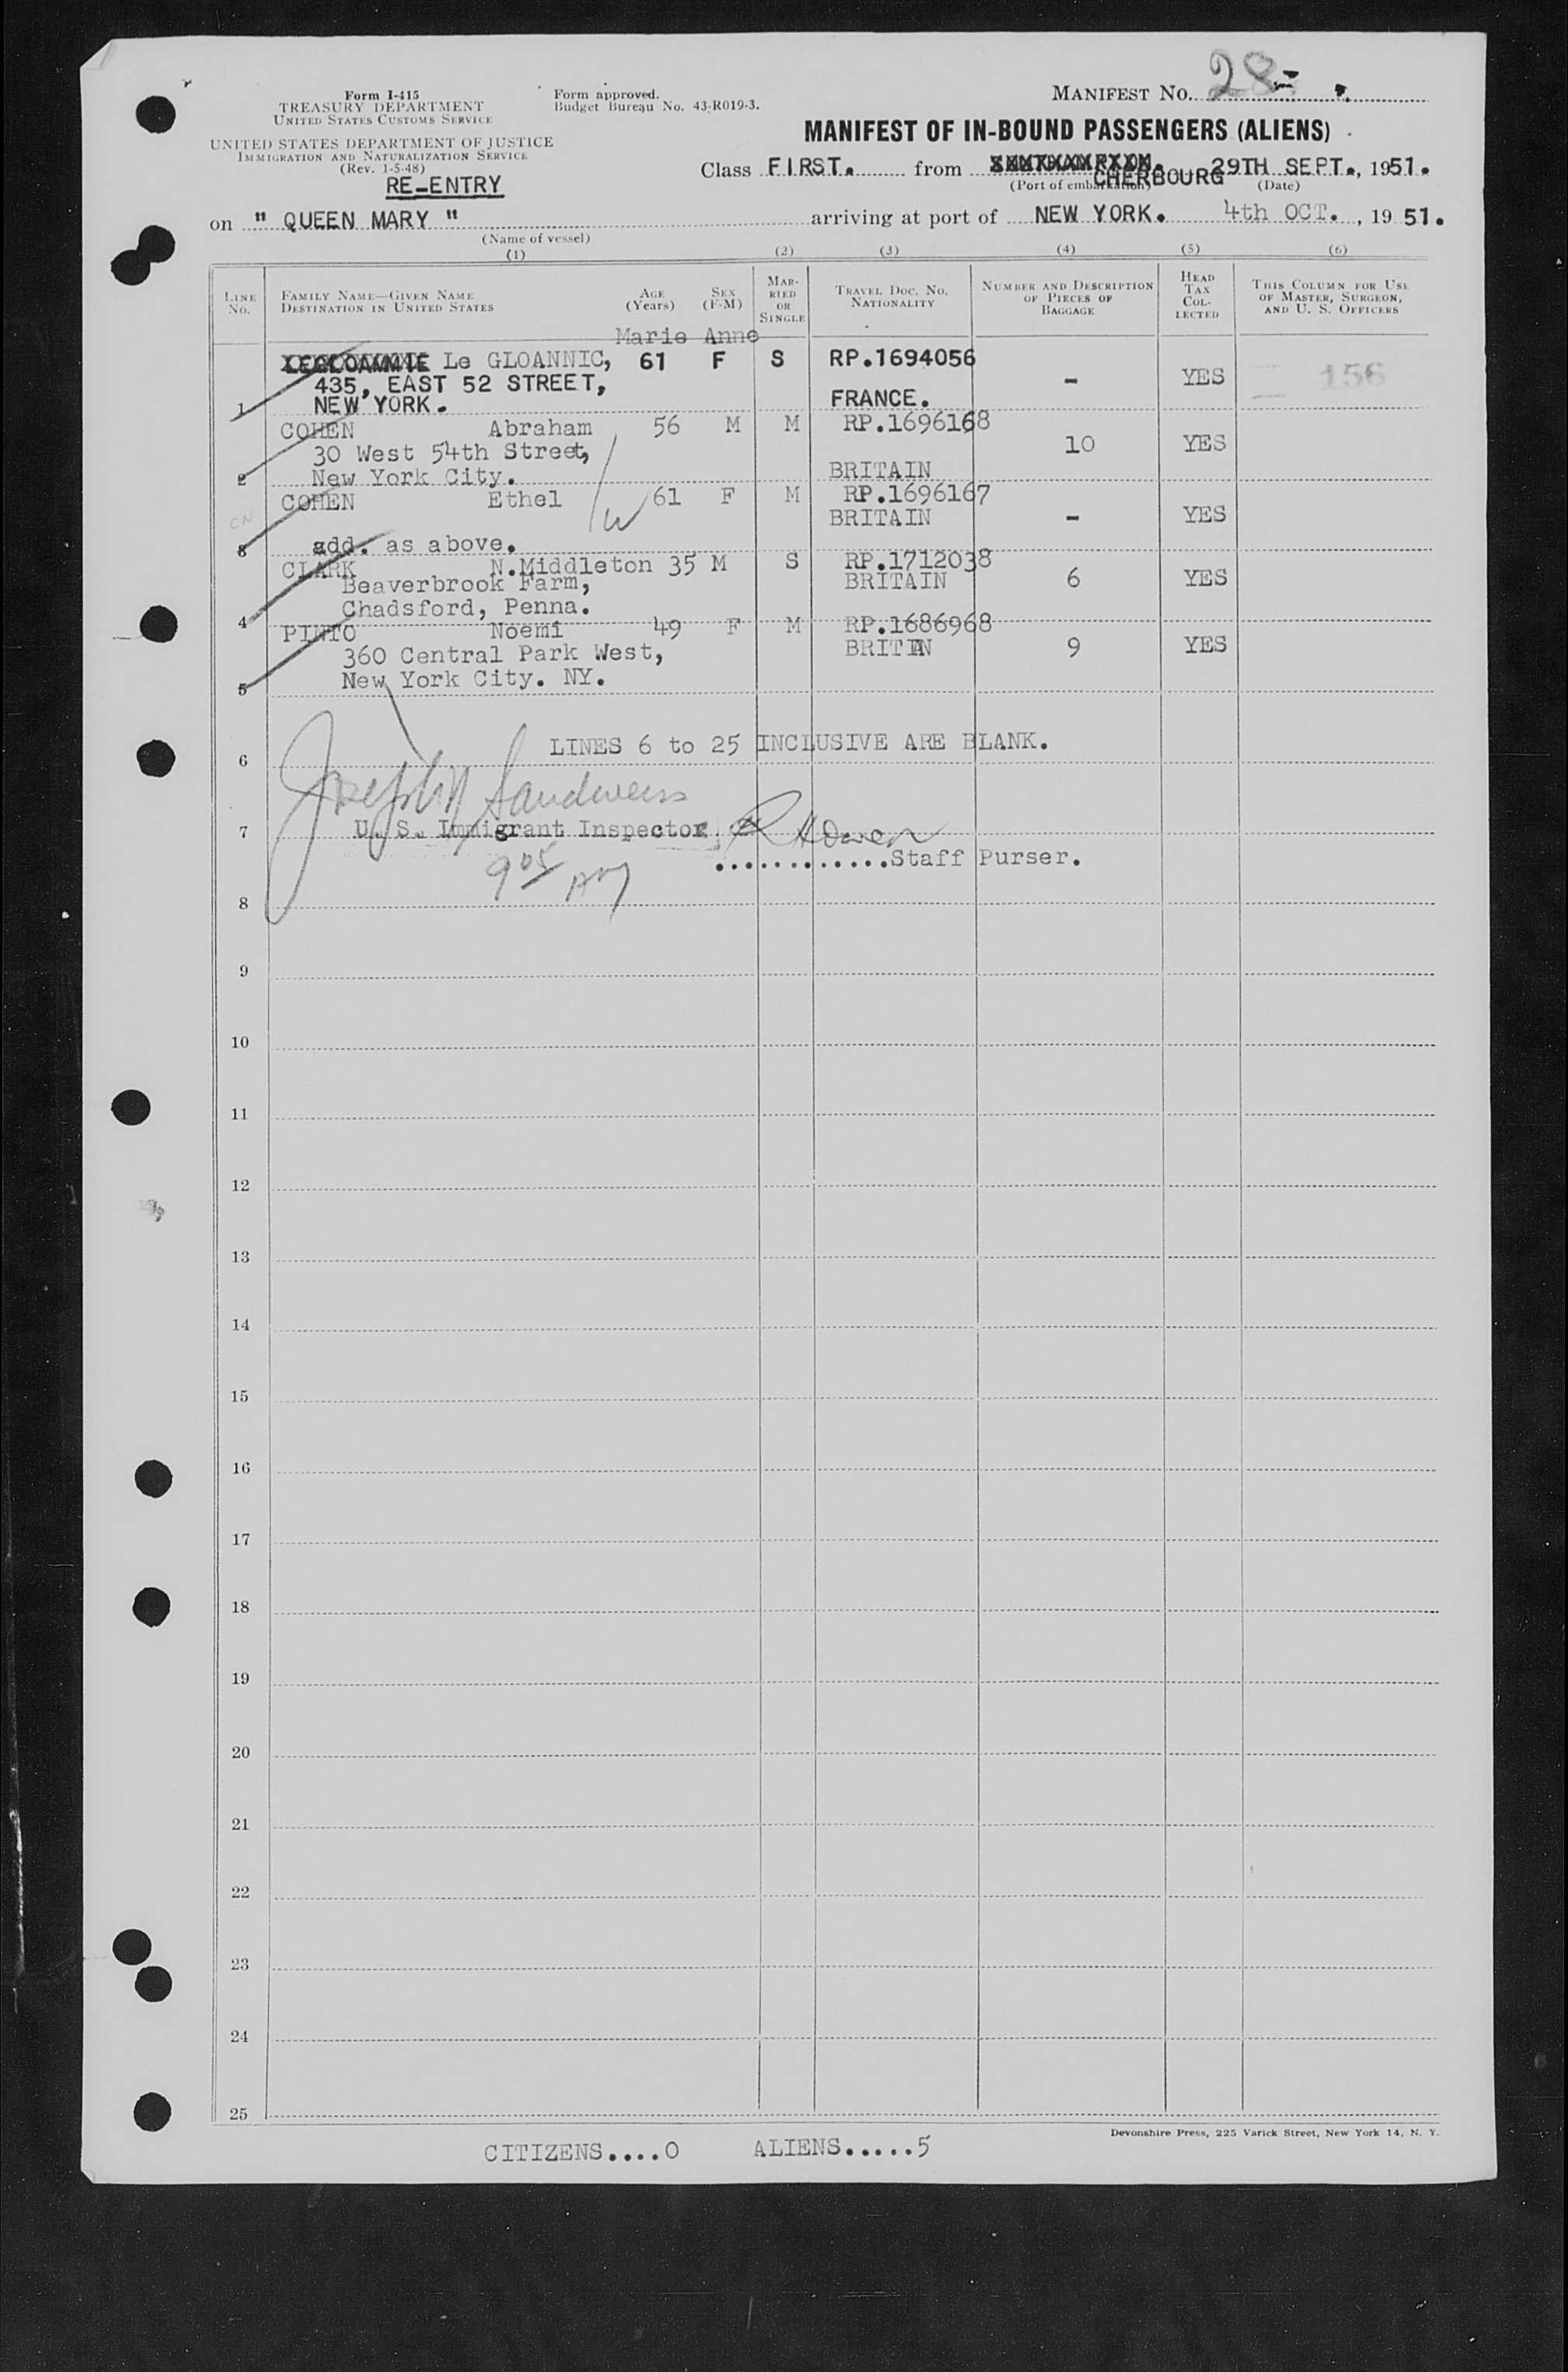 Form I-415
TREASURY DEPARTMENT
UNITED STATES CUSTOMS SERVICE
UNITED STATES DEPARTMENT OF JUSTICE
IMMIGRATION AND NATURALIZATION SERVICE
(Rev. 1-5-48)
RE-ENTRY
Form approved.
Budget Bureau No. 43-R019-3.
MANIFEST NO. 28
MANIFEST OF IN-BOUND PASSENGERS (ALIENS)
Class FIRST. from CHERBOURG 29TH SEPT., 1951.
(Port of embarkation) (Date)
on " QUEEN MARY " arriving at port of NEW YORK. 4th OCT., 1951.
(Name of vessel)
(1) (2) (3) (4) (5) (6)
LINE NO. FAMILY NAME—GIVEN NAME DESTINATION IN UNITED STATES AGE (Years) SEX (F-M) MARRIED OR SINGLE TRAVEL DOC. NO. NATIONALITY NUMBER AND DESCRIPTION OF PIECES OF BAGGAGE HEAD TAX COLLECTED THIS COLUMN FOR USE OF MASTER, SURGEON, AND U. S. OFFICERS
Marie Anne
Le GLOANNIC, 61 F S RP.1694056
435, EAST 52 STREET, - YES 156
1 NEW YORK. FRANCE.
COHEN Abraham 56 M M RP.1696168
30 West 54th Street, 10 YES
2 New York City. BRITAIN
COHEN Ethel 61 F M RP.1696167
W BRITAIN - YES
3 add. as above.
CLARK N.Middleton 35 M S RP.1712038
Beaverbrook Farm, BRITAIN 6 YES
4 Chadsford, Penna.
PINTO Noemi 49 F M RP.1686968
360 Central Park West, BRITAIN 9 YES
5 New York City. NY.
6 LINES 6 to 25 INCLUSIVE ARE BLANK.
Joseph Sandweiss
7 U. S. Immigrant Inspector
.............Staff Purser.
9 05 AM
8
9
10
11
12
13
14
15
16
17
18
19
20
21
22
23
24
25
Devonshire Press, 225 Varick Street, New York 14, N. Y.
CITIZENS....0 ALIENS.....5